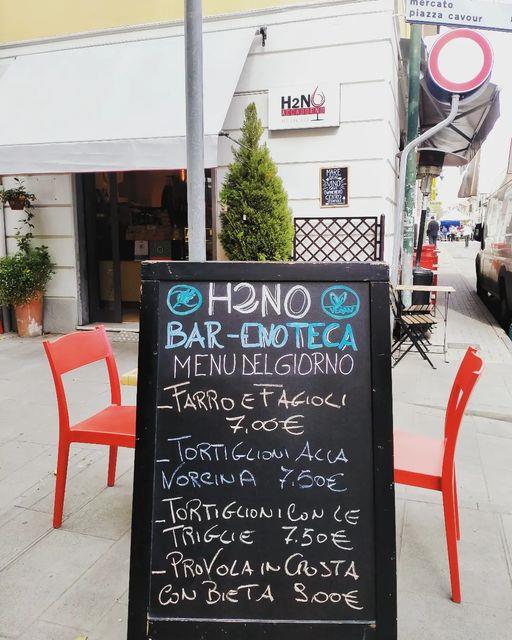 mercato
piazza cavour
H2NO
H2NO
VEGAN
BAR-ENOTECA
MENU DEL GIORNO
-FARRO E FAGIOLI
7,00€
-TORTIGLIONI ALLA
NORCINA 7.50€
-TORTIGLIONI CON LE
TRIGLIE 7.50€
-PROVOLA IN CROSTA
CON BIETA 9.00€